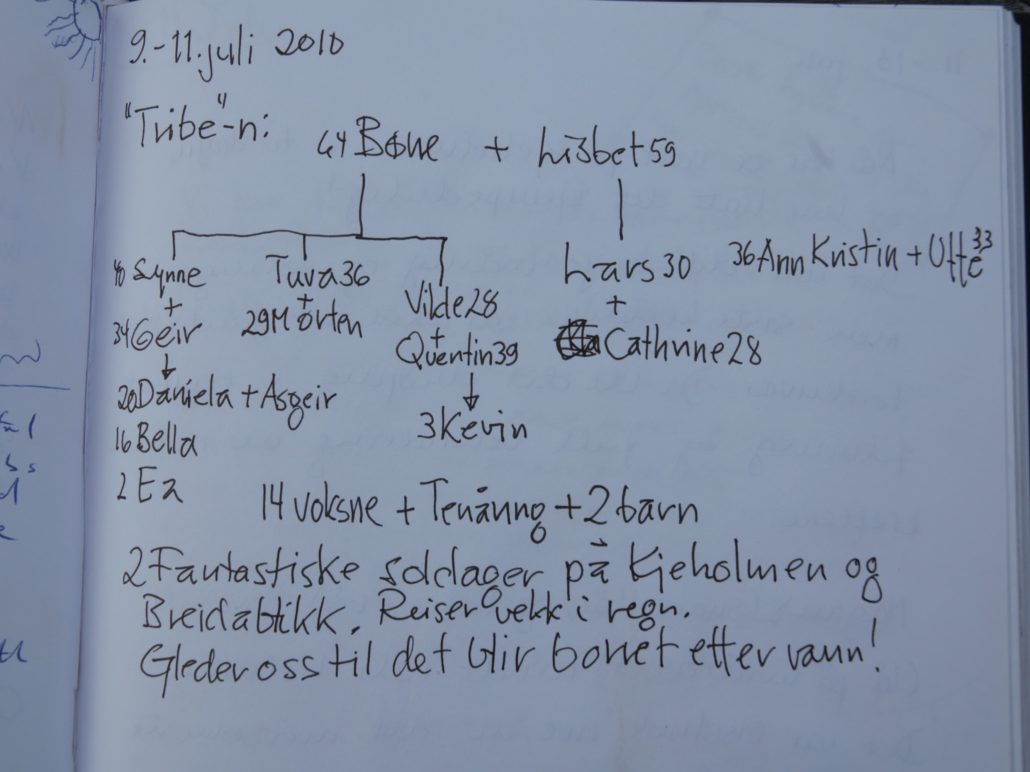 9.-11.juli 2010
"Tribe"-n:
64 Bønne + Lisbet 59
40 Synne Tuva 36 Vilde 28 Lars 30 36 Ann Kristin + Uffe 33
+ + + +
34 Geir 29 Morten Quentin 39 Cathrine 28
20 Daniela + Asgeir 3 Kevin
16 Bella
2 Ea
14 voksne + Tenåring + 2 barn
2 Fantastiske soldager på Kjeholmen og
Breidablikk. Reiser vekk i regn.
Gleder oss til det blir boret etter vann!